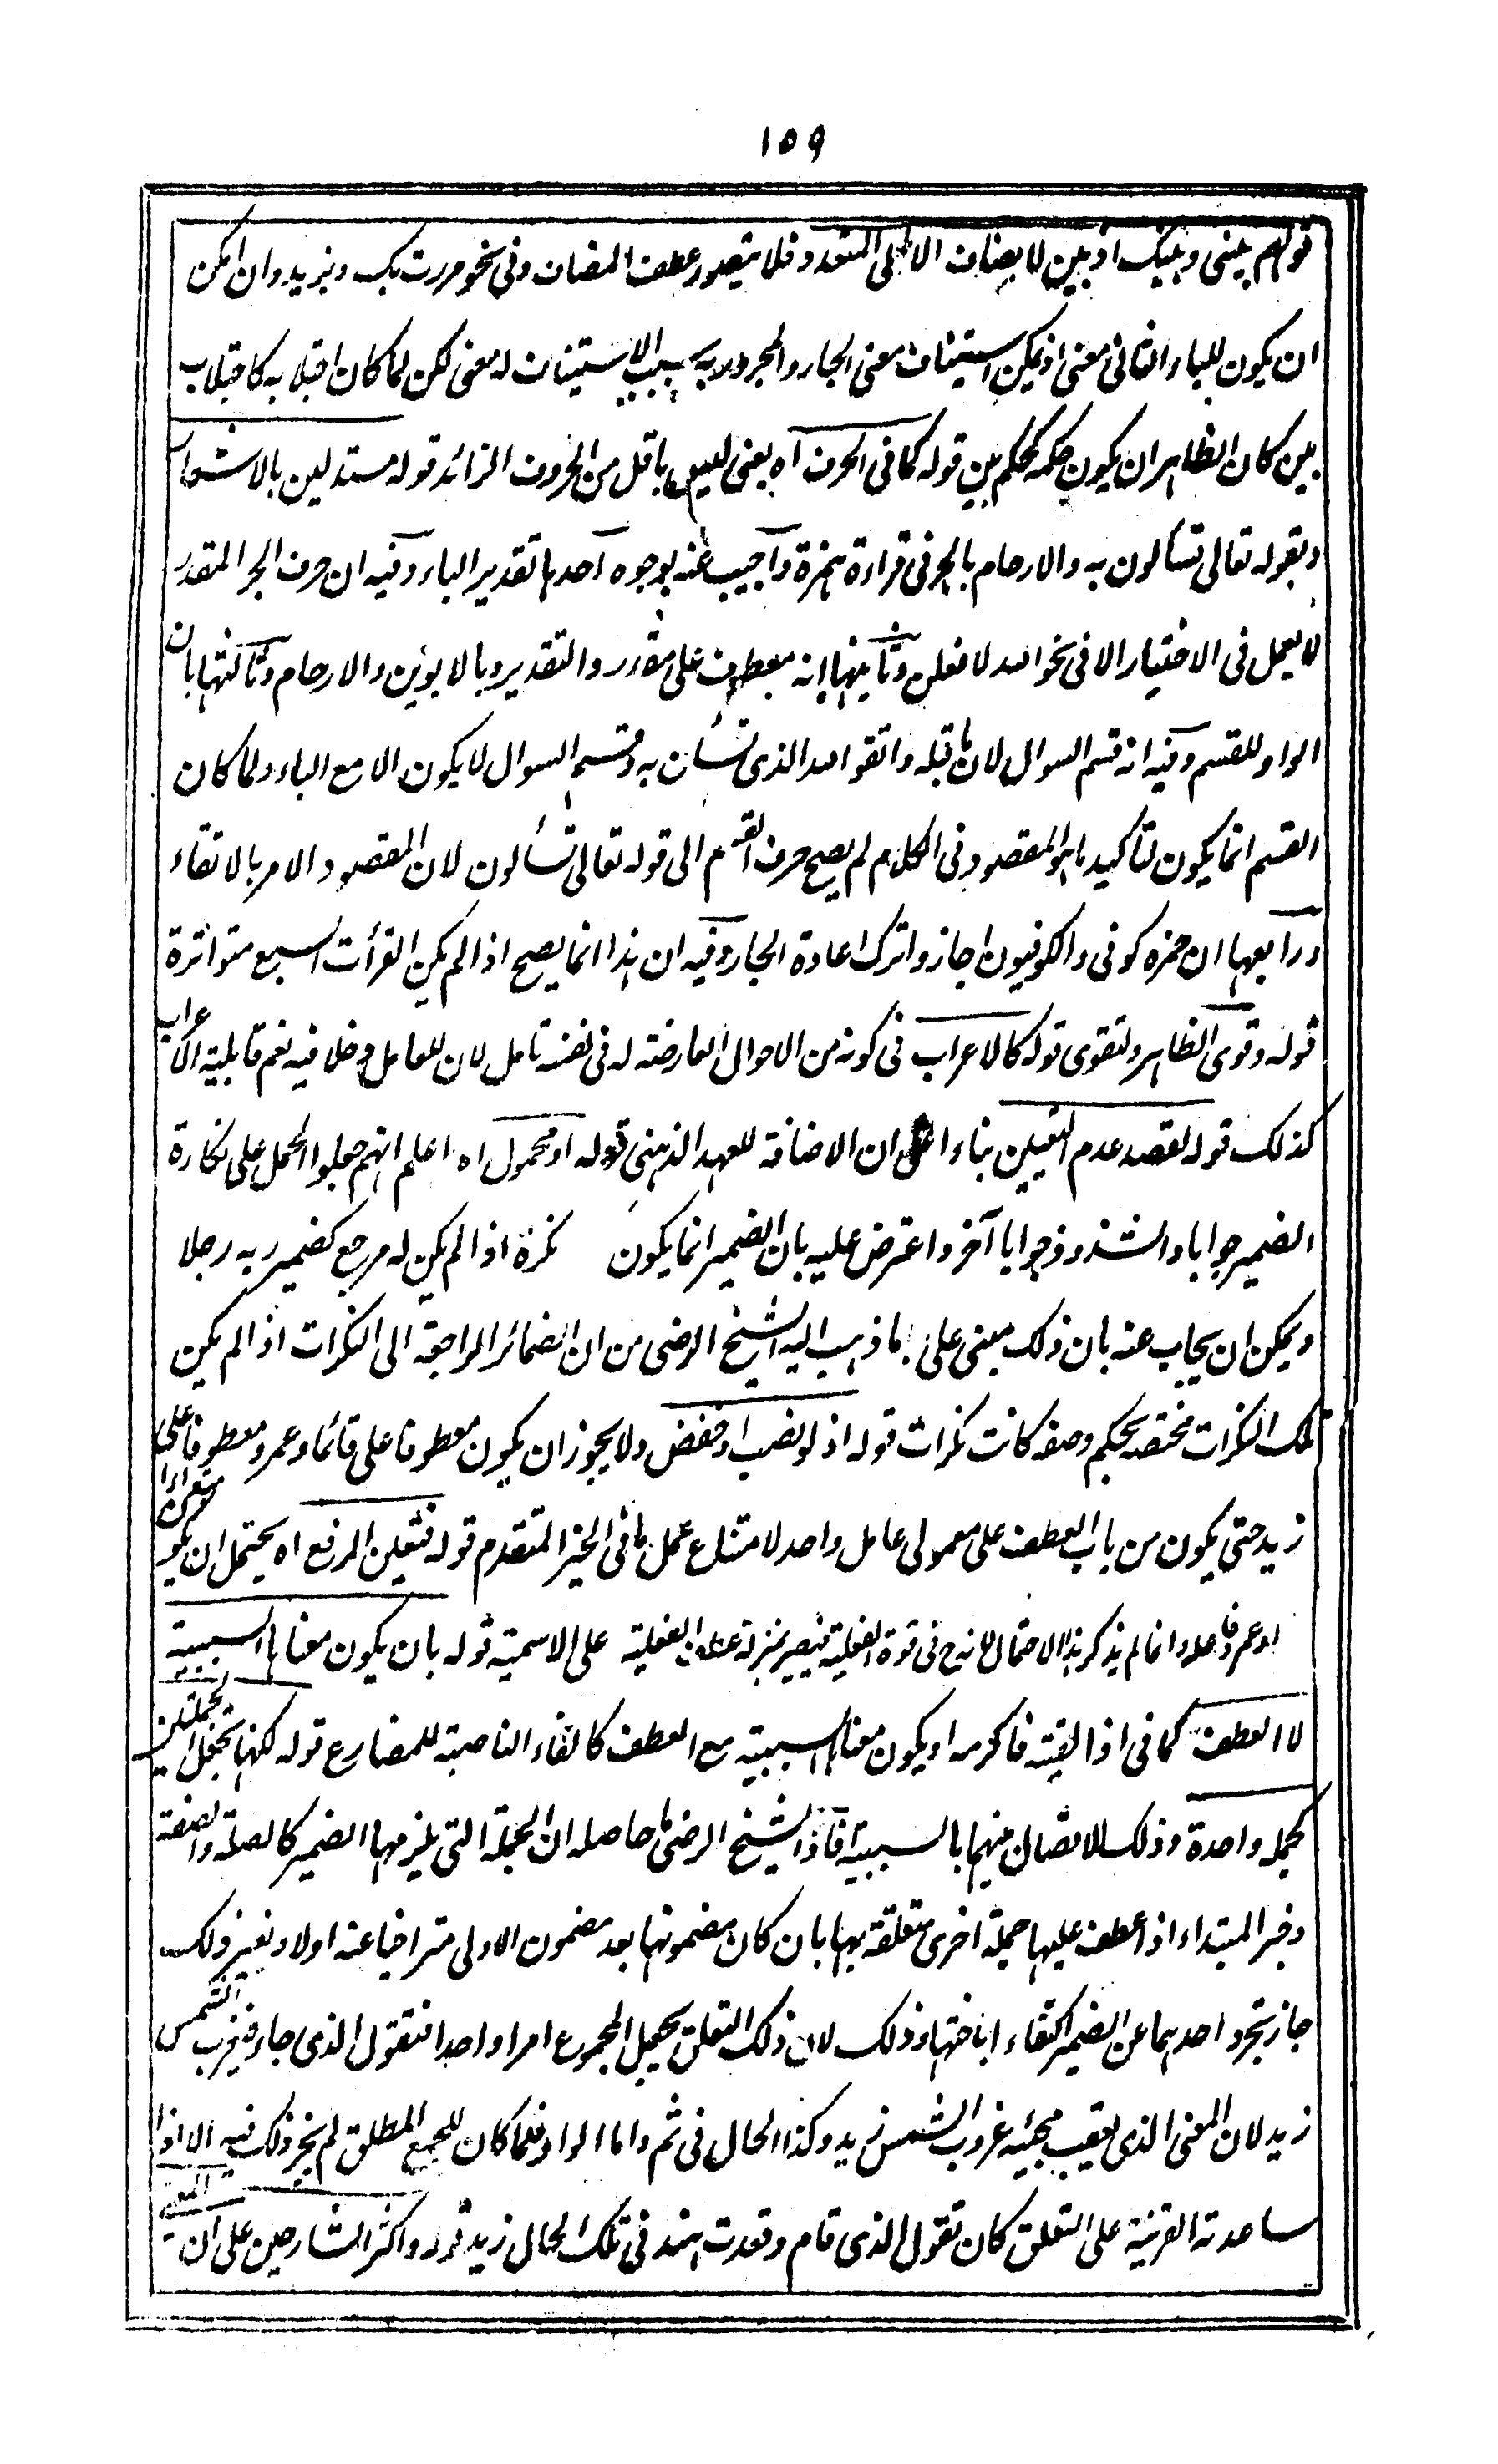 ١٥٩
قولهم بينى و بينك اذ بين لا يضاف الا الى المتعدد فلا يتصور عطف المضاف وفى نحو مررت بك و بزيد وان امكن
ان يكون للباء الثانى معنى اذ يمكن استيناف معنى الجار والمجرور به بسبب الاستيناف له معنى لكن لما كان اجتلابه كاجتلاب
بين كان الظاهر ان يكون حكمه كحكم بين قوله كما فى الحرف اه يعنى ليس باقل من الحروف الزائد قوله مستدلين بالاشعار
وبقوله تعالى تسالون به والارحام بالجر فى قراءة حمزة وآجيب عنه بوجوه آحدها تقدير الباء وفيه ان حرف الجر المقدر
لا يعمل فى الاختيار الا فى نحو الله لافعلن وثآنيها انه معطوف على مقدر والتقدير وبالابوين والارحام وثآلثها بان
الواو للقسم وفيه انه قسم السوال لان ما قبله واتقوا الله الذى تسألون به وقسم السوال لا يكون الا مع الباء ولما كان
القسم انما يكون لتاكيد ما هو المقصود فى الكلام لم يصح صرف القسم الى قوله تعالى تسألون لان المقصود الامر بالاتقاء
ورآبعها ان حمزه كوفى والكوفيون اجازوا ترك اعادة الجار وفيه ان هذا انما يصح اذا لم يكن القرأت السبع متواترة
قوله وقوى الظاهر ولتقوى قوله كالاعراب فى كونه من الاحوال العارضة له فى نفسه تامل لان للعامل دخلا فيه نعم قابلية الاعراب
كذلك قوله لقصد عدم التعيين بناء على ان الاضافة للعهد الذهنى قوله او محمول اه اعلم انهم جعلوا الحمل على نكارة
الضمير جوابا والشذوذ جوابا آخر واعترض عليه بان الضمير انما يكون نكرة اذا لم يكن له مرجع كضمير ربه رجلا
ويمكن ان يجاب عنه بان ذلك مبنى على ما ذهب اليه الشيخ الرضى من ان الضمائر الراجعة الى النكرات اذا لم يكن
تلك النكرات مختصة بحكم وصفه كانت نكرات قوله اذ لو نصب او خفض ولا يجوز ان يكون معطوفا على قائما وعمرو معطوفا على
زيد حتى يكون من باب العطف على معمولى عامل واحد لامتناع عمل ما فى الخبر المتقدم قوله فتعين الرفع اه يحتمل ان يكون
او عمرو فاعلا وانما لم يذكر هذا الاحتمال لانه ح فى قوة الفعلية فيصير بمنزلة عطف الفعلية على الاسمية قوله بان يكون معناها السببية
لا العطف كما فى اذا لقيته فاكرمه او يكون معناها السببية مع العطف كالفاء الناصبة للمضارع قوله لكنها تجعل الجملتين
كجملة واحدة وذلك للاتصال بينهما بالسببية آفاد الشيخ الرضى ما حاصله ان الجملة التى يلزمها الضمير كالصلة والصفة
وخبر المبتداء اذا عطف عليها جملة اخرى متعلقة بها بان كان مضمونها بعد مضمون الاولى متراخيا عنه اولا ولغير ذلك
جاز تجرد احدهما عن الضمير اكتفاء باختها وذلك لان ذلك التعلق يجعل المجموع امرا واحدا فتقول الذى جاء فغرب الشمس
زيد لان المعنى الذى يعقب مجيئه غروب الشمس زيد وكذا الحال فى ثم واما الواو فلما كان للجمع المطلق لم يجز ذلك فيه الا اذا
ساعدته القرينة على التعلق كان تقول الذى قام وقعدت هند فى تلك الحال زيد قوله واكثر الشارحين على ان المعنى